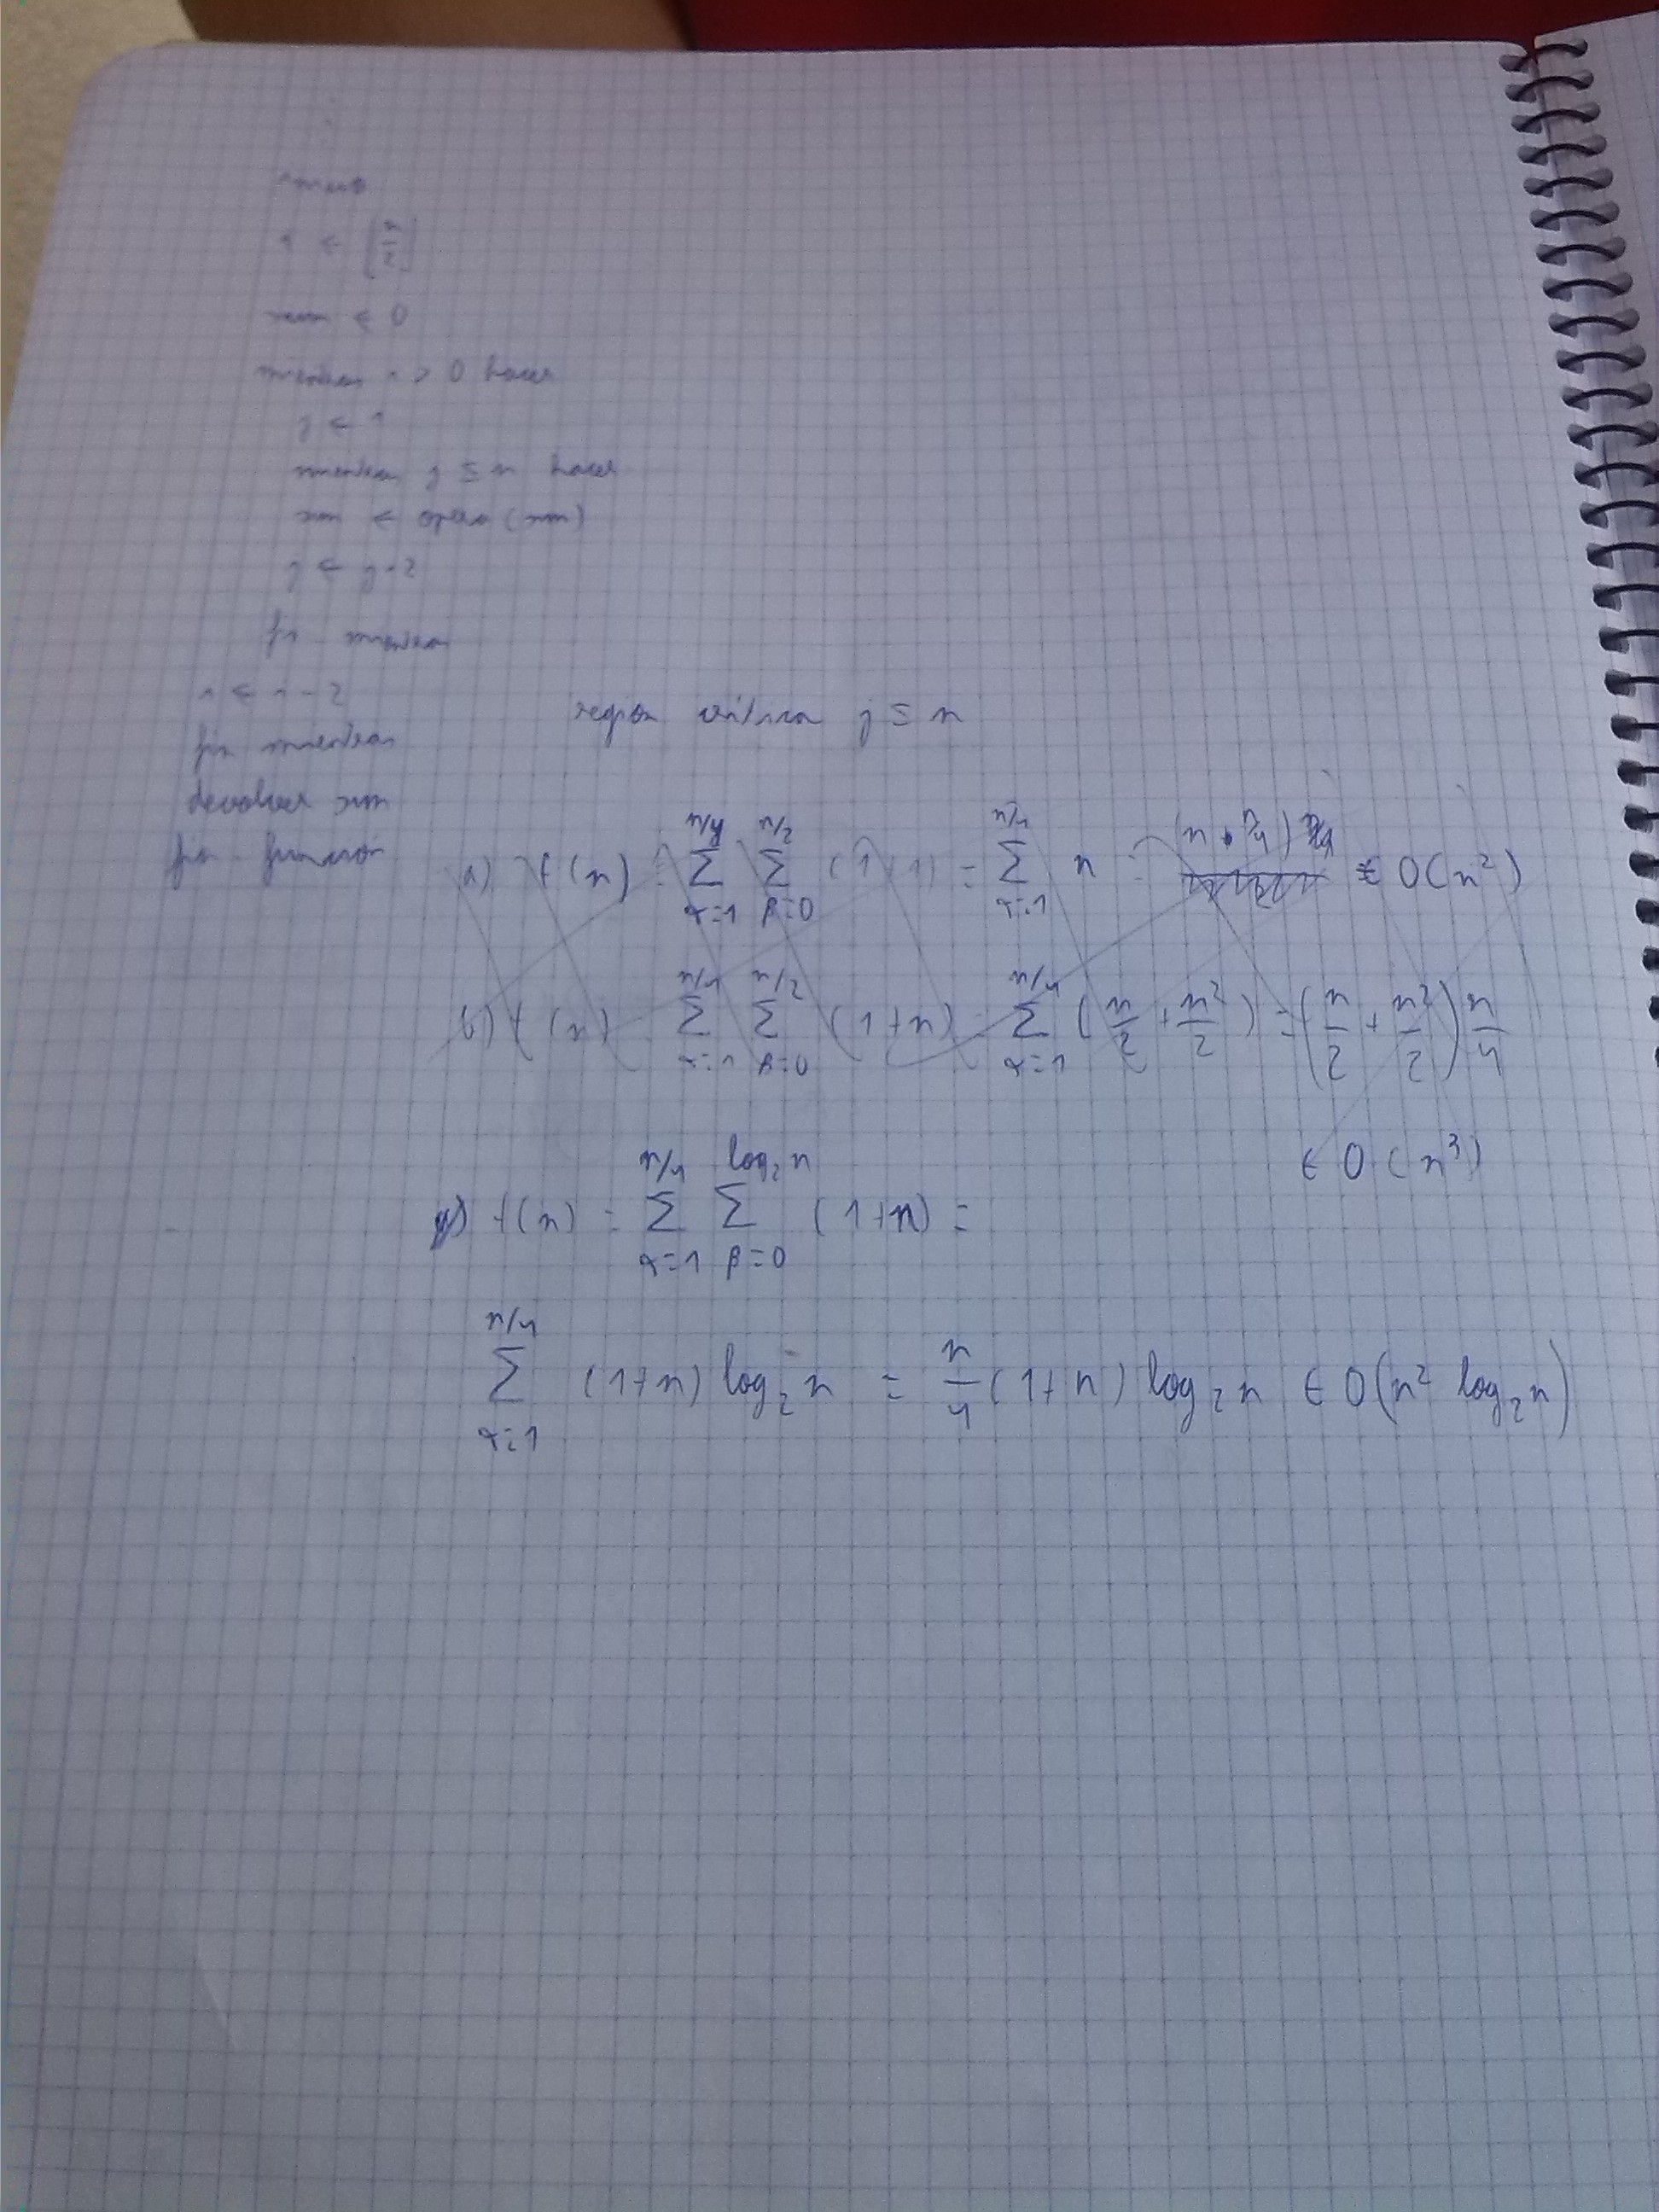 inicio
i ← [n/2]
sum ← 0
mientras i > 0 hacer
j ← 1
mientras j ≤ n hacer
sum ← opera (sum)
j ← j · 2
fin mientras
i ← i - 2
fin mientras
devolver sum
fin función
región crítica j ≤ n
a) f(n) = ∑_{α=1}^{n/4} ∑_{β=0}^{n/2} (1+1) = ∑_{α=1}^{n/4} n = (n · n/4) ∈ O(n²)
b) f(n) = ∑_{α=1}^{n/4} ∑_{β=0}^{n/2} (1+n) = ∑_{α=1}^{n/4} (n/2 + n²/2) = (n/2 + n²/2) n/4
∈ O(n³)
f(n) = ∑_{α=1}^{n/4} ∑_{β=0}^{log₂ n} (1+n) =
∑_{α=1}^{n/4} (1+n) log₂ n = n/4 (1+n) log₂ n ∈ O(n² log₂ n)